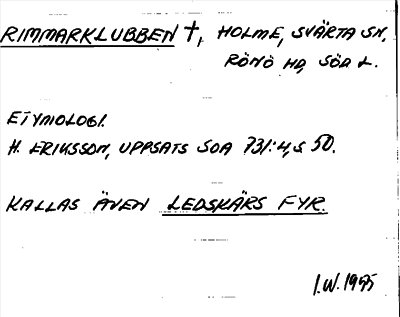 RIMMARKLUBBEN †, HOLME, SVÄRTA SN,
RÖNÖ HD, SÖD L.
ETYMOLOGI.
H. ERIKSSON, UPPSATS SOA 731:4, S 50.
KALLAS ÄVEN LEDSKÄRS FYR.
I.W. 1975